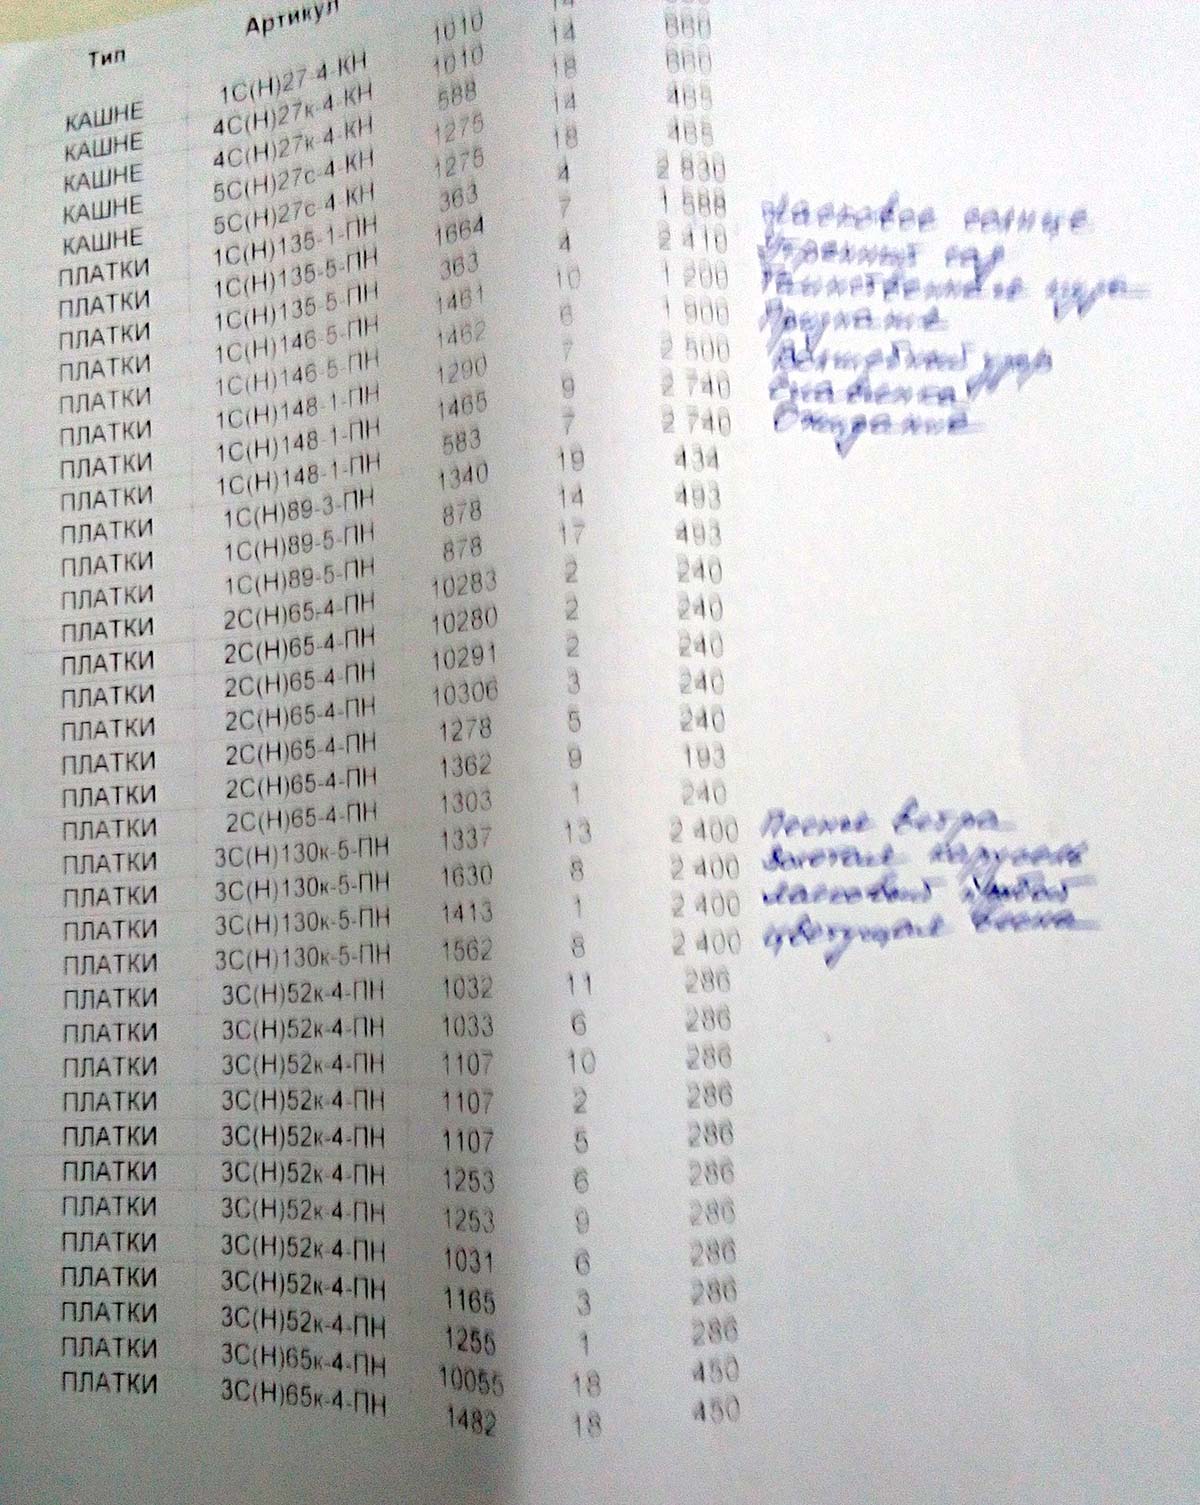 Тип Артикул
КАШНЕ 1С(Н)27-4-КН 1010 14
КАШНЕ 4С(Н)27к-4-КН 1010 14 660
КАШНЕ 4С(Н)27к-4-КН 588 18 660
КАШНЕ 5С(Н)27с-4-КН 1275 14 465
КАШНЕ 5С(Н)27с-4-КН 1275 18 465
ПЛАТКИ 1С(Н)135-1-ПН 363 4 2 830
ПЛАТКИ 1С(Н)135-5-ПН 1664 7 1 588 Ласковое солнце
ПЛАТКИ 1С(Н)135-5-ПН 363 4 2 410 Утренний сад
ПЛАТКИ 1С(Н)146-5-ПН 1461 10 1 200
ПЛАТКИ 1С(Н)146-5-ПН 1462 6 1 900
ПЛАТКИ 1С(Н)148-1-ПН 1290 7 2 500 Волшебный узор
ПЛАТКИ 1С(Н)148-1-ПН 1465 9 2 740
ПЛАТКИ 1С(Н)148-1-ПН 583 7 2 740 Ожидание
ПЛАТКИ 1С(Н)89-3-ПН 1340 19 434
ПЛАТКИ 1С(Н)89-5-ПН 878 14 493
ПЛАТКИ 1С(Н)89-5-ПН 878 17 493
ПЛАТКИ 2С(Н)65-4-ПН 10283 2 240
ПЛАТКИ 2С(Н)65-4-ПН 10280 2 240
ПЛАТКИ 2С(Н)65-4-ПН 10291 2 240
ПЛАТКИ 2С(Н)65-4-ПН 10306 3 240
ПЛАТКИ 2С(Н)65-4-ПН 1278 5 240
ПЛАТКИ 2С(Н)65-4-ПН 1362 9 193
ПЛАТКИ 2С(Н)65-4-ПН 1303 1 240
ПЛАТКИ 3С(Н)130к-5-ПН 1337 13 2 400 Песня ветра
ПЛАТКИ 3С(Н)130к-5-ПН 1630 8 2 400 Золотая карусель
ПЛАТКИ 3С(Н)130к-5-ПН 1413 1 2 400 Ласковый прибой
ПЛАТКИ 3С(Н)130к-5-ПН 1562 8 2 400 Цветущая весна
ПЛАТКИ 3С(Н)52к-4-ПН 1032 11 286
ПЛАТКИ 3С(Н)52к-4-ПН 1033 6 286
ПЛАТКИ 3С(Н)52к-4-ПН 1107 10 286
ПЛАТКИ 3С(Н)52к-4-ПН 1107 2 286
ПЛАТКИ 3С(Н)52к-4-ПН 1107 5 286
ПЛАТКИ 3С(Н)52к-4-ПН 1253 6 286
ПЛАТКИ 3С(Н)52к-4-ПН 1253 9 286
ПЛАТКИ 3С(Н)52к-4-ПН 1031 6 286
ПЛАТКИ 3С(Н)52к-4-ПН 1165 3 286
ПЛАТКИ 3С(Н)52к-4-ПН 1255 1 286
ПЛАТКИ 3С(Н)65к-4-ПН 10055 18 450
ПЛАТКИ 3С(Н)65к-4-ПН 1482 18 450